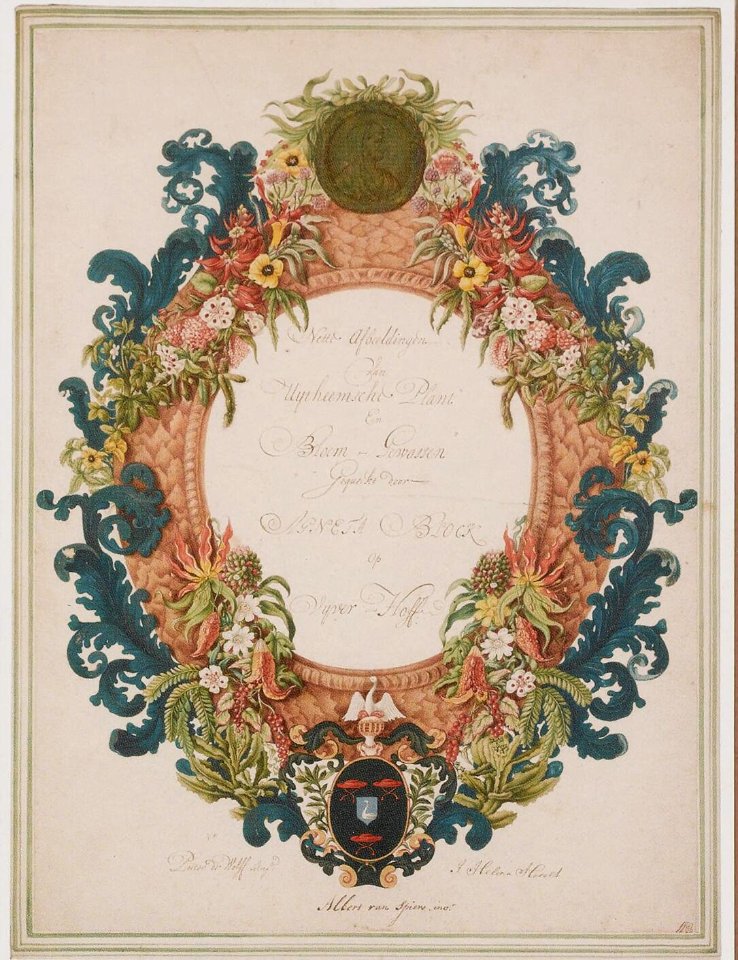 Nette Afbeeldingen
Van
Uÿtheemsche Plant
En
Bloem - Gewassen
Gequeekt door
AGNETA BLOCK
op
Vÿver - Hoff
Pieter de Wolff
J. Helena Herolt
Allert van Spiers. inv.